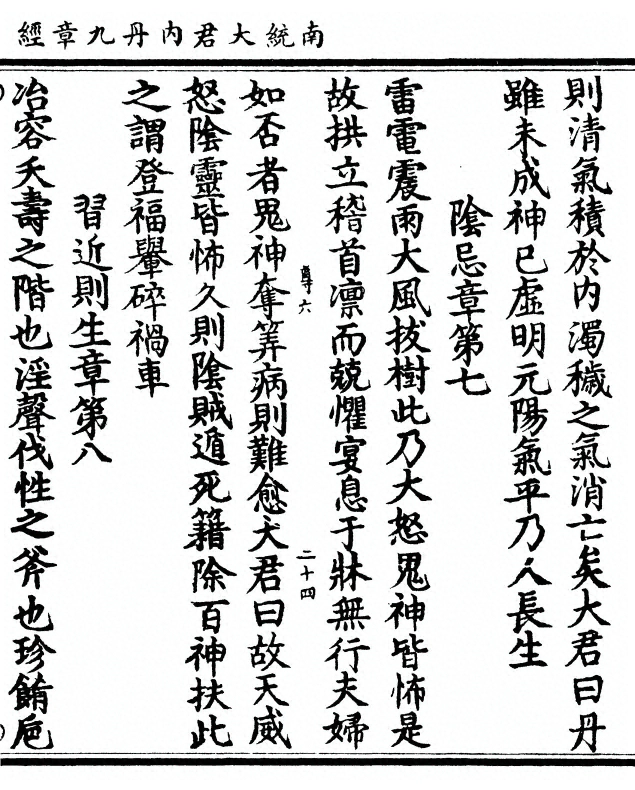 南統大君內丹九章經
則清氣積於內濁穢之氣消亡矣大君曰丹
雖未成神已虛明元陽氣平乃久長生
陰忌章第七
雷電震雨大風拔樹此乃大怒鬼神皆怖是
故拱立稽首凛而兢懼宴息于牀無行夫婦
尊六
二十四
如否者鬼神奪筭病則難愈大君曰故天威
怒陰靈皆怖久則陰賊遁死籍除百神扶此
之謂登福轝碎禍車
習近則生章第八
冶容夭壽之階也淫聲伐性之斧也珍餚巵